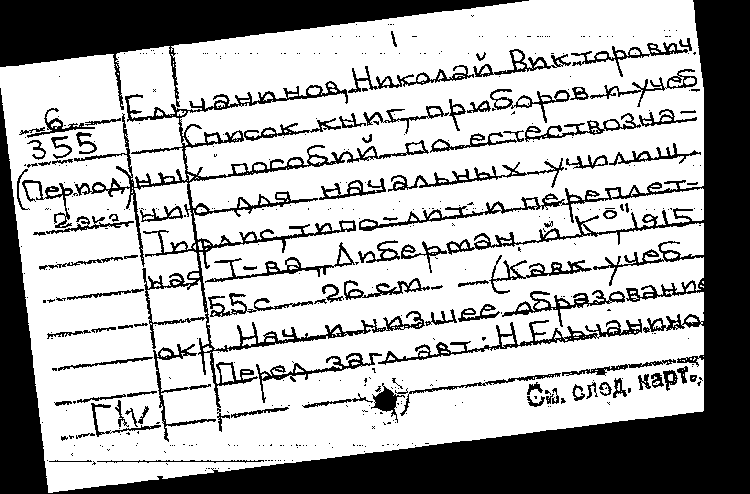 6
355
(Период)
2 экз.
Ельчанинов, Николай Викторович
Список книг, приборов и учеб
ных пособий по естествозна=
нию для начальных училищ.
Тифлис, типо-лит. и переплет-
ная Т-ва „Либерман и К°", 1915
55 с 26 см — (Кавк учеб
окр Нач. и низшее образование
Перед загл авт: Н Ельчанино
См. след. карт.